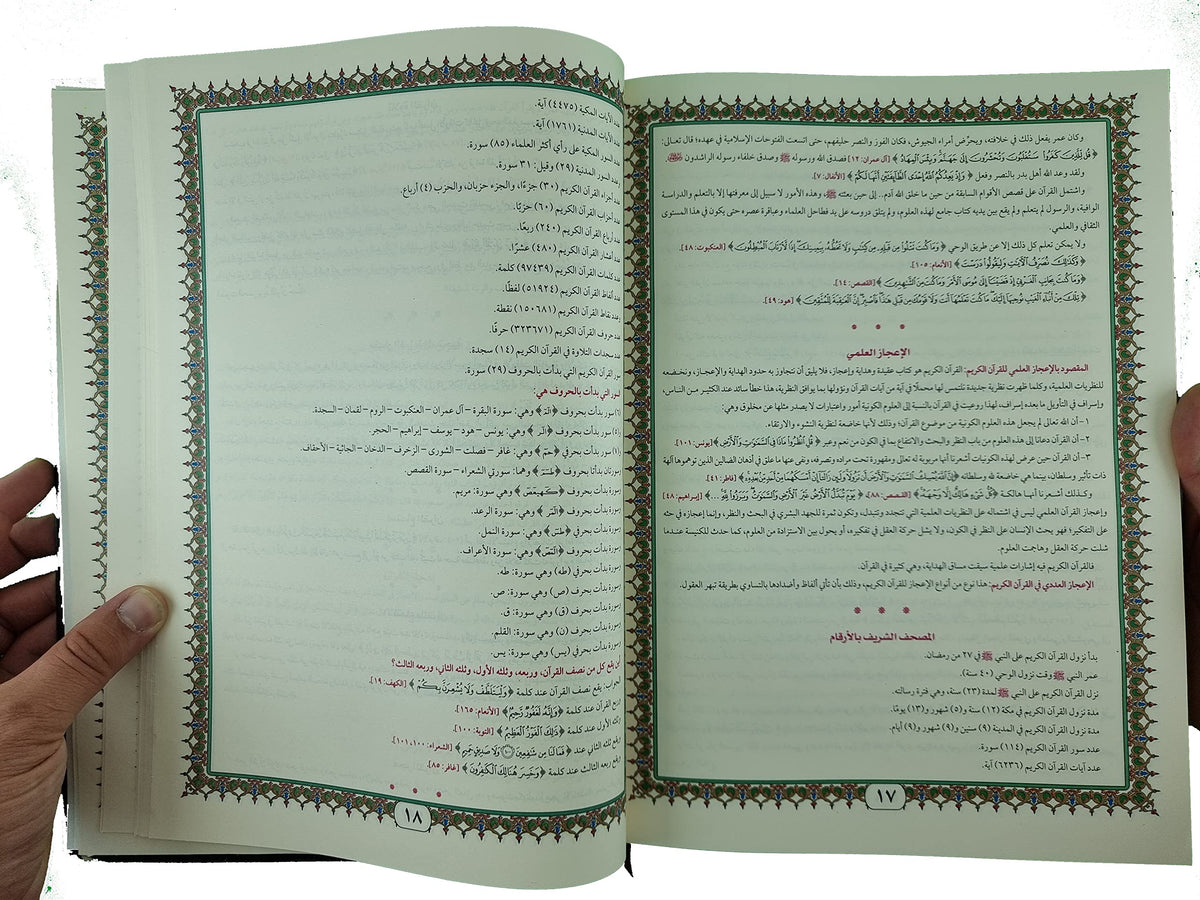 وكان عمر يفعل ذلك في خلافته، ويحرِّض أمراء الجيوش، فكان الفوز والنصر حليفهم، حتى اتسعت الفتوحات الإسلامية في عهده؛ قال تعالى:
﴿قُل لِّلَّذِينَ كَفَرُوا۟ سَتُغْلَبُونَ وَتُحْشَرُونَ إِلَىٰ جَهَنَّمَ وَبِئْسَ ٱلْمِهَادُ﴾ [آل عمران: ١٢] فصدق الله ورسوله ﷺ وصدق خلفاء رسوله الراشدون
ولقد وعد الله أهل بدر بالنصر وفعل ﴿وَإِذْ يَعِدُكُمُ ٱللَّهُ إِحْدَى ٱلطَّآئِفَتَيْنِ أَنَّهَا لَكُمْ﴾ [الأنفال: ٧].
واشتمل القرآن على قصص الأقوام السابقة من حين ما خلق الله آدم.. إلى حين بعثته ﷺ، وهذه الأمور لا سبيل إلى معرفتها إلا بالتعلم والدراسة
الوافية، والرسول لم يتعلم ولم يقع بين يديه كتاب جامع لهذه العلوم، ولم يتلق دروسه على يد فطاحل العلماء وعباقرة عصره حتى يكون في هذا المستوى
الثقافي والعلمي.
ولا يمكن تعلم كل ذلك إلا عن طريق الوحي ﴿وَمَا كُنتَ تَتْلُوا۟ مِن قَبْلِهِۦ مِن كِتَٰبٍ وَلَا تَخُطُّهُۥ بِيَمِينِكَ إِذًا لَّٱرْتَابَ ٱلْمُبْطِلُونَ﴾ [العنكبوت: ٤٨].
﴿وَكَذَٰلِكَ نُصَرِّفُ ٱلْءَايَٰتِ وَلِيَقُولُوا۟ دَرَسْتَ﴾ [الأنعام: ١٠٥].
﴿وَمَا كُنتَ بِجَانِبِ ٱلْغَرْبِىِّ إِذْ قَضَيْنَآ إِلَىٰ مُوسَى ٱلْأَمْرَ وَمَا كُنتَ مِنَ ٱلشَّٰهِدِينَ﴾ [القصص: ٤٤].
﴿تِلْكَ مِنْ أَنۢبَآءِ ٱلْغَيْبِ نُوحِيهَآ إِلَيْكَ مَا كُنتَ تَعْلَمُهَآ أَنتَ وَلَا قَوْمُكَ مِن قَبْلِ هَٰذَا فَٱصْبِرْ إِنَّ ٱلْعَٰقِبَةَ لِلْمُتَّقِينَ﴾ [هود: ٤٩].
* * *
الإعجاز العلمي
المقصود بالإعجاز العلمي للقرآن الكريم: القرآن الكريم هو كتاب عقيدة وهداية وإعجاز، فلا يليق أن نتجاوز به حدود الهداية والإعجاز، ونخضعه
للنظريات العلمية، وكلما ظهرت نظرية جديدة نلتمس لها محملًا في آية من آيات القرآن ونؤولها بما يوافق النظرية، هذا خطأ سائد عند الكثير من الناس،
وإسراف في التأويل ما بعده إسراف، لهذا روعيت في القرآن بالنسبة إلى العلوم الكونية أمور واعتبارات لا يصدر مثلها عن مخلوق وهي:
١- أن الله تعالى لم يجعل هذه العلوم الكونية من موضوع القرآن؛ وذلك لأنها خاضعة لنظرية النشوء والارتقاء.
٢- أن القرآن دعانا إلى هذه العلوم من باب النظر والبحث والانتفاع بما في الكون من نعم وعبر ﴿قُلِ ٱنظُرُوا۟ مَاذَا فِى ٱلسَّمَٰوَٰتِ وَٱلْأَرْضِ﴾ [يونس: ١٠١].
٣- أن القرآن حين عرض لهذه الكونيات أشعرنا أنها مربوبة له تعالى ومقهورة تحت مراده وتصرفه، ونفى عنها ما علق في أذهان الضالين الذين توهموها آلهة
ذات تأثير وسلطان، بينما هي خاضعة لله وسلطانه ﴿إِنَّ ٱللَّهَ يُمْسِكُ ٱلسَّمَٰوَٰتِ وَٱلْأَرْضَ أَن تَزُولَا وَلَئِن زَالَتَآ إِنْ أَمْسَكَهُمَا مِنْ أَحَدٍ مِّنۢ بَعْدِهِۦٓ﴾ [فاطر: ٤١].
وكذلك أشعرنا أنها هالكة ﴿كُلُّ شَىْءٍ هَالِكٌ إِلَّا وَجْهَهُۥ﴾ [القصص: ٨٨]. ﴿يَوْمَ تُبَدَّلُ ٱلْأَرْضُ غَيْرَ ٱلْأَرْضِ وَٱلسَّمَٰوَٰتُ وَبَرَزُوا۟ لِلَّهِ ...﴾ [إبراهيم: ٤٨]
وإعجاز القرآن العلمي ليس في اشتماله على النظريات العلمية التي تتجدد وتتبدل، وتكون ثمرة للجهد البشري في البحث والنظر، وإنما إعجازه في حثه
على التفكير؛ فهو يحث الإنسان على النظر في الكون، ولا يشل حركة العقل في تفكيره، أو يحول بين الاستزادة من العلوم، كما حدث للكنيسة عندما
شلت حركة العقل وهاجمت العلوم.
فالقرآن الكريم فيه إشارات علمية سيقت مساق الهداية، وهي كثيرة في القرآن.
الإعجاز العددي في القرآن الكريم: هذا نوع من أنواع الإعجاز للقرآن الكريم، وذلك بأن تأتي ألفاظ وأضدادها بالتساوي بطريقة تبهر العقول.
* * *
المصحف الشريف بالأرقام
بدأ نزول القرآن الكريم على النبي ﷺ في ٢٧ من رمضان.
عمر النبي ﷺ وقت نزول الوحي (٤٠ سنة).
نزل القرآن الكريم على النبي ﷺ لمدة (٢٣) سنة، وهي فترة رسالته.
مدة نزول القرآن الكريم في مكة (١٢) سنة و(٥) شهور و(١٣) يومًا.
مدة نزول القرآن الكريم في المدينة (٩) سنين و(٩) شهور و(٩) أيام.
عدد سور القرآن الكريم (١١٤) سورة.
عدد آيات القرآن الكريم (٦٢٣٦) آية.
١٧
عدد الآيات المكية (٤٤٧٥) آية.
عدد الآيات المدنية (١٧٦١) آية.
عدد السور المكية على رأي أكثر العلماء (٨٥) سورة.
وعدد السور المدنية (٢٩) وقيل: ٣١ سورة.
عدد أجزاء القرآن الكريم (٣٠) جزءًا، والجزء حزبان، والحزب (٤) أرباع.
عدد أحزاب القرآن الكريم (٦٠) حزبًا.
عدد أرباع القرآن الكريم (٢٤٠) ربعًا.
عدد أعشار القرآن الكريم (٤٨٠) عشرًا.
عدد كلمات القرآن الكريم (٩٧٤٣٩) كلمة.
عدد ألفاظ القرآن الكريم (٥١٩٢٤) لفظًا.
وعدد نقاط القرآن الكريم (١٥٠٦٨١) نقطة.
عدد حروف القرآن الكريم (٣٢٣٦٧١) حرفًا.
عدد سجدات التلاوة في القرآن الكريم (١٤) سجدة.
سور القرآن الكريم التي بدأت بالحروف (٢٩) سورة.
السور التي بدأت بالحروف هي:
(٦) سور بدأت بحروف ﴿الٓمٓ﴾ وهي: سورة البقرة – آل عمران – العنكبوت – الروم – لقمان – السجدة.
(٥) سور بدأت بحروف ﴿الٓر﴾ وهي: يونس – هود – يوسف – إبراهيم – الحجر.
(٧) سور بدأت بحرفي ﴿حمٓ﴾ وهي: غافر – فصلت – الشورى – الزخرف – الدخان – الجاثية – الأحقاف.
سورتان بدأتا بحروف ﴿طسٓمٓ﴾ وهما: سورتي الشعراء – سورة القصص.
سورة بدأت بحروف ﴿كٓهيعٓصٓ﴾ وهي سورة: مريم.
سورة بدأت بحروف ﴿الٓمٓر﴾ وهي: سورة الرعد.
سورة بدأت بحرفي ﴿طسٓ﴾ وهي: سورة النمل.
سورة بدأت بحروف ﴿الٓمٓصٓ﴾ وهي: سورة الأعراف.
سورة بدأت بحرفي (طه) وهي سورة: طه.
وسورة بدأت بحرف (ص) وهي سورة: ص.
وسورة بدأت بحرف (ق) وهي سورة: ق.
وسورة بدأت بحرف (ن) وهي سورة: القلم.
وسورة بدأت بحرفي (يس) وهي سورة: يس.
أين يقع كل من نصف القرآن، وربعه، وثلثه الأول، وثلثه الثاني، وربعه الثالث؟
الجواب: يقع نصف القرآن عند كلمة ﴿وَلْيَتَلَطَّفْ وَلَا يُشْعِرَنَّ بِكُمْ﴾ [الكهف: ١٩].
وربع القرآن عند كلمة ﴿وَإِنَّهُۥ لَغَفُورٌ رَّحِيمٌۢ﴾ [الأنعام: ١٦٥].
وثلثه الأول عند كلمة ﴿ذَٰلِكَ ٱلْفَوْزُ ٱلْعَظِيمُ﴾ [التوبة: ١٠٠].
ويقع ثلثه الثاني عند ﴿فَمَا لَنَا مِن شَٰفِعِينَ ۝ وَلَا صَدِيقٍ حَمِيمٍ﴾ [الشعراء: ١٠٠، ١٠١].
ويقع ربعه الثالث عند كلمة ﴿وَخَسِرَ هُنَالِكَ ٱلْكَٰفِرُونَ﴾ [غافر: ٨٥].
* * *
١٨